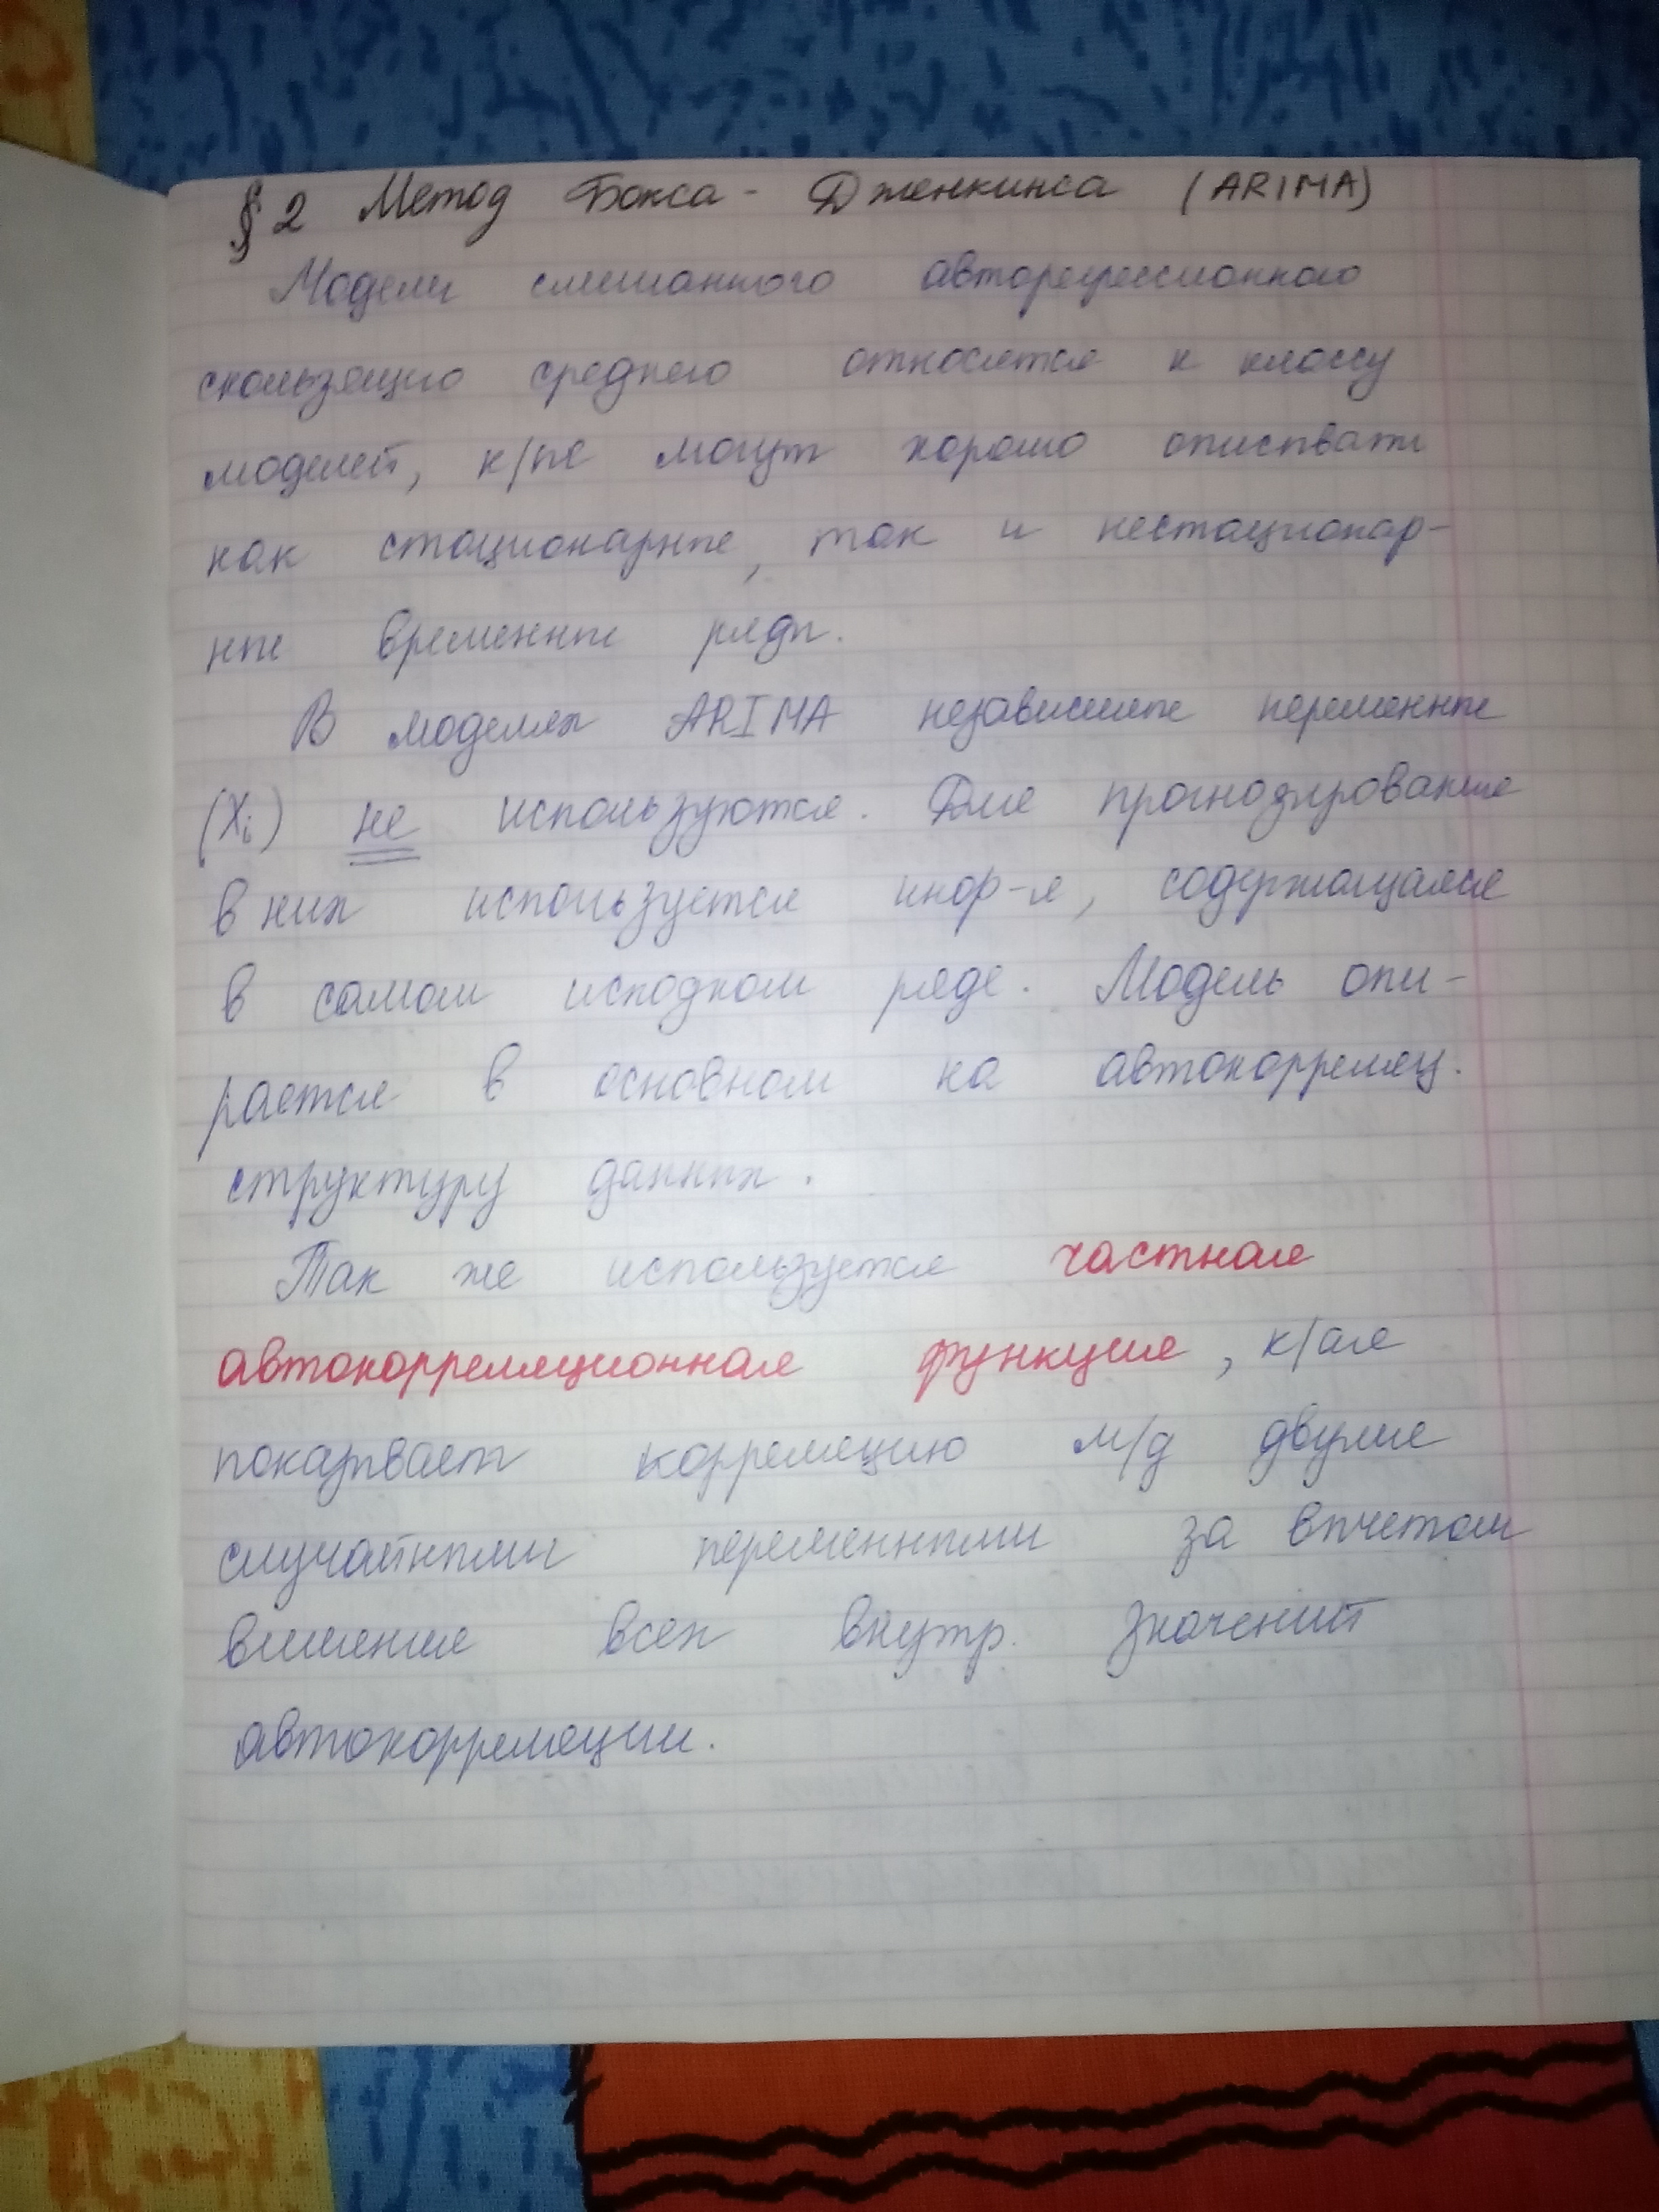 § 2 Метод Бокса - Дженкинса (ARIMA)
Модели смешанного авторегрессионного
скользящего среднего относятся к классу
моделей, к/ые могут хорошо описывать
как стационарные, так и нестационар-
ные временные ряды.
В моделях ARIMA независимые переменные
(Xi) не используются. Для прогнозирования
в них используется инф-я, содержащаяся
в самом исходном ряде. Модель опи-
рается в основном на автокорреляц.
структуру данных.
Так же используется частная
автокорреляционная функция, к/ая
показывает корреляцию м/д двумя
случайными переменными за вычетом
влияния всех внутр. значений
автокорреляции.